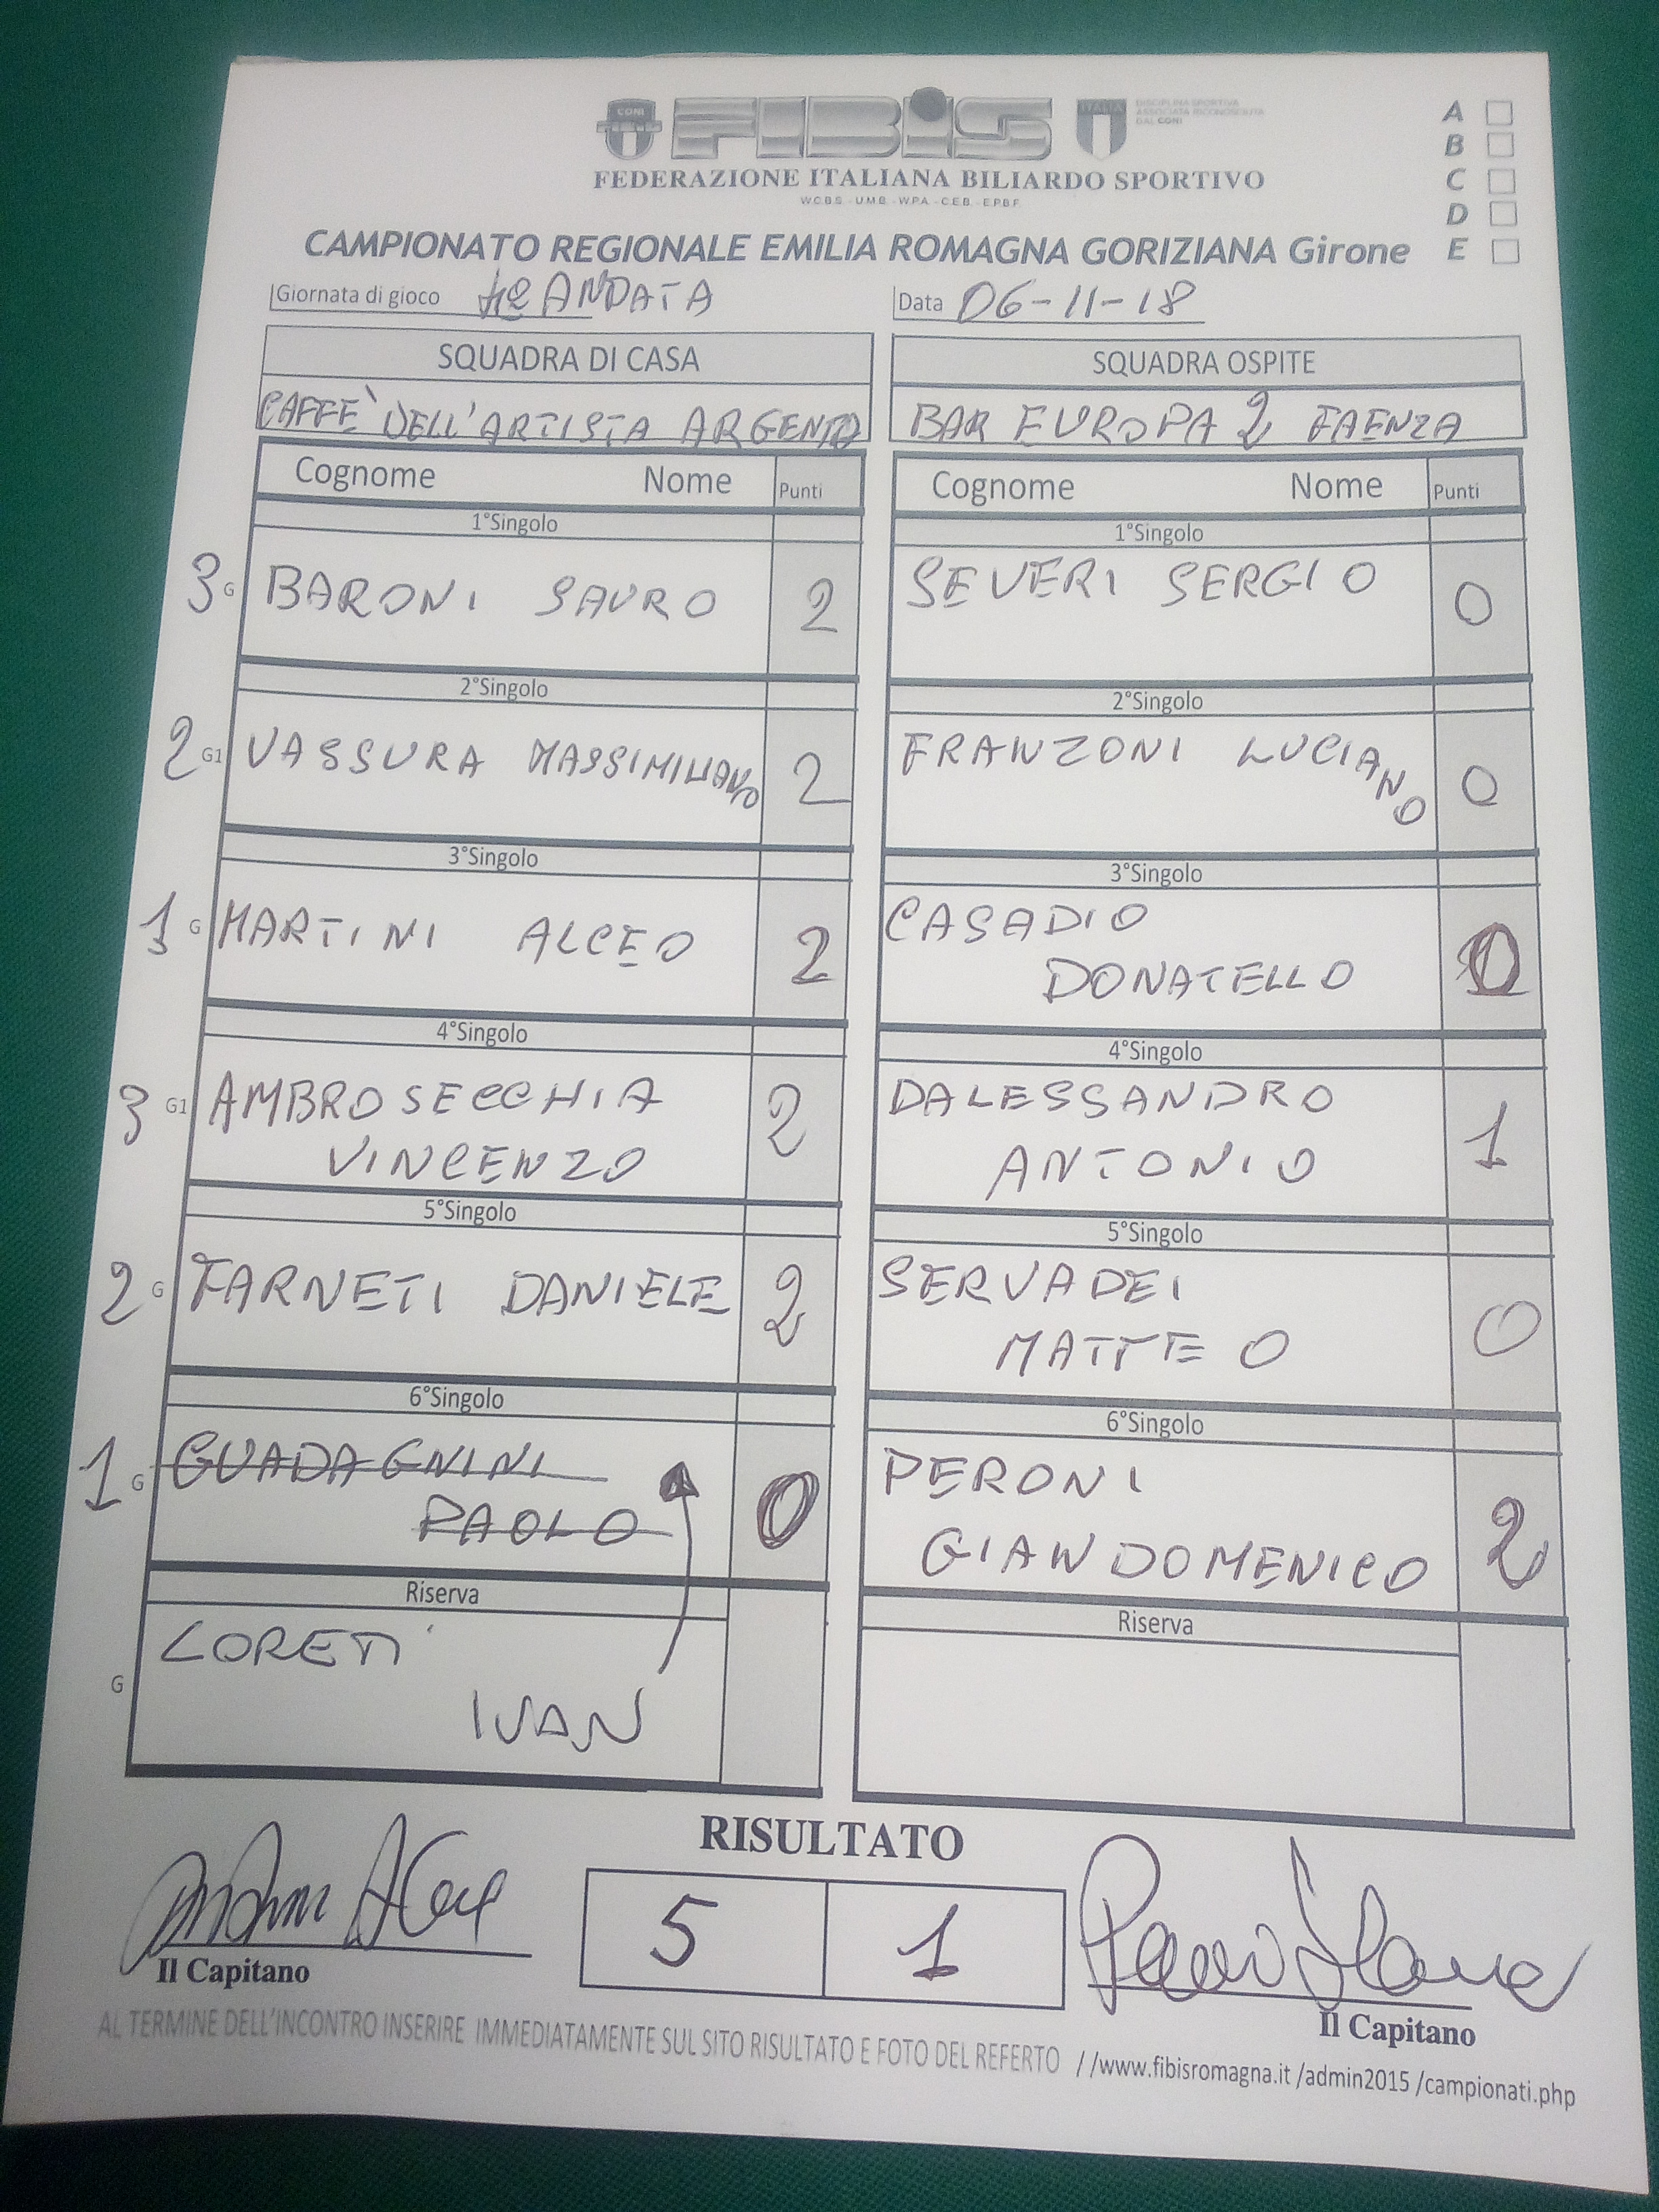 CONI
FIBIS
ITALIA
DISCIPLINA SPORTIVA
ASSOCIATA RICONOSCIUTA
DAL CONI
FEDERAZIONE ITALIANA BILIARDO SPORTIVO
W.C.B.S. - U.M.B. - W.P.A. - C.E.B. - E.P.B.F.
A
B
C
D
E
CAMPIONATO REGIONALE EMILIA ROMAGNA GORIZIANA Girone
Giornata di gioco ANDATA
Data 06-11-18
SQUADRA DI CASA
SQUADRA OSPITE
CAFFÈ DELL'ARTISTA ARGENTA
BAR EUROPA 2 FAENZA
Cognome Nome Punti
Cognome Nome Punti
1°Singolo
1°Singolo
3 G BARONI SAURO 2
SEVERI SERGIO 0
2°Singolo
2°Singolo
2 G1 VASSURA MASSIMILIANO 2
FRANZONI LUCIANO 0
3°Singolo
3°Singolo
1 G MARTINI ALCEO 2
CASADIO
DONATELLO 0
4°Singolo
4°Singolo
3 G1 AMBROSECCHIA
VINCENZO 2
DALESSANDRO
ANTONIO 1
5°Singolo
5°Singolo
2 G FARNETI DANIELE 2
SERVADEI
MATTEO 0
6°Singolo
6°Singolo
1 G GUADAGNINI
PAOLO 0
PERONI
GIANDOMENICO 2
Riserva
Riserva
G LORETI
IVAN
RISULTATO
5 1
Il Capitano
Il Capitano
AL TERMINE DELL'INCONTRO INSERIRE IMMEDIATAMENTE SUL SITO RISULTATO E FOTO DEL REFERTO //www.fibisromagna.it /admin2015 /campionati.php